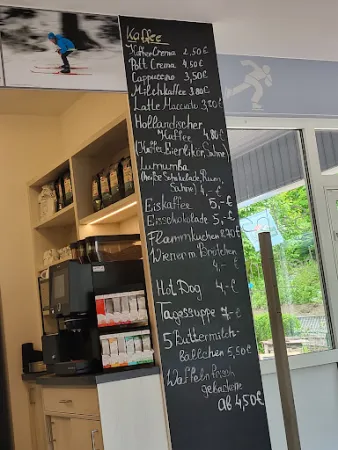 Kaffee
Kaffee Crema 2,50€
Pott Crema 4,50€
Cappuccino 3,50€
Milchkaffee 3.80€
Latte Macciato 3,50€
Holländischer
Kaffee 4.80€
(Kaffee, Eierlikör, Sahne)
Lumumba
(heiße Schokolade, Rum,
Sahne) 4,-€
Eiskaffee 5,-€
Eisschokolade 5,-€
Flammkuchen 8.70€
Wiener m. Brötchen
4,-€
Hot Dog 4,-€
Tagessuppe 7,-€
5 Buttermilch-
bällchen 5,50€
Waffeln frisch
gebackene
ab 4,50€